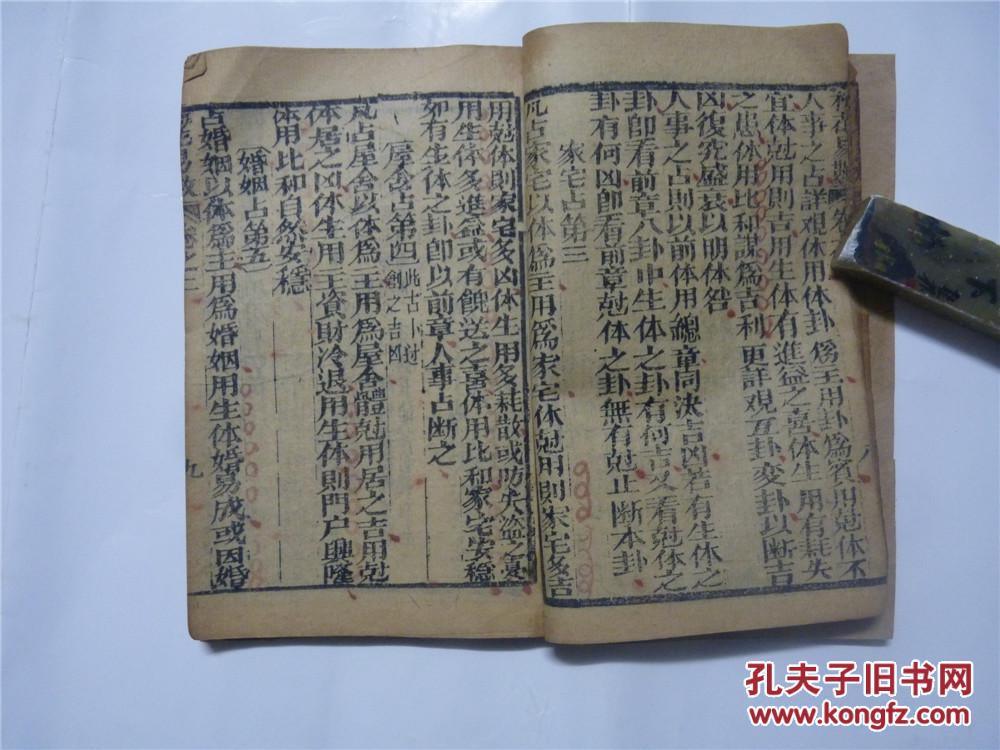 人事之占詳观体用体卦爲主用卦爲賓用尅体不
宜体尅用則吉用生体有進益之喜体生用有耗失
之患体用比和謀爲吉利更詳观互卦变卦以断吉
凶復究盛衰以明休咎
人事之占則以前体用總章同决吉凶若有生体之
卦即看前章八卦中生体之卦有何吉又看尅体之
卦有何凶即看前章尅体之卦無有尅止断本卦
家宅占第三
凡占家宅以体爲主用爲家宅体尅用則家宅多吉
用尅体則家宅多凶体生用多耗散或防失盗之憂
用生体多進益或有餽送之喜体用比和家宅安穏
如有生体之卦即以前章人事占断之
屋舍占第四 此占卜过
創之吉凶
凡占屋舍以体爲主用爲屋舍體尅用居之吉用尅
体居之凶体生用主資財冷退用生体則門户興隆
体用比和自然安穏
婚姻占第五
占婚姻以体爲主用爲婚姻用生体婚易成或因婚
九
孔夫子旧书网
www.kongfz.com